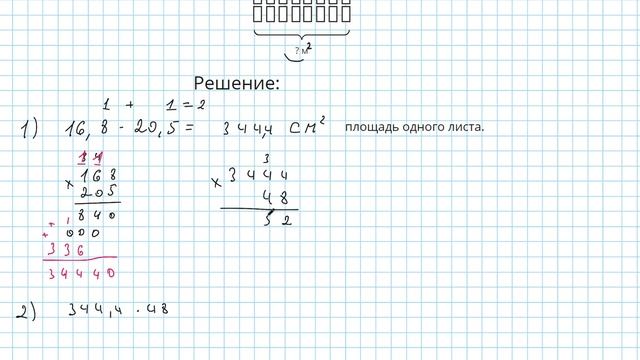 ? м²
Решение:
1 + 1 = 2
1) 16,8 · 20,5 = 344,4 см² площадь одного листа.
3
× 168
× 3444
205
48
840
52
+ 000
+ 336
34440
2) 344,4 · 48